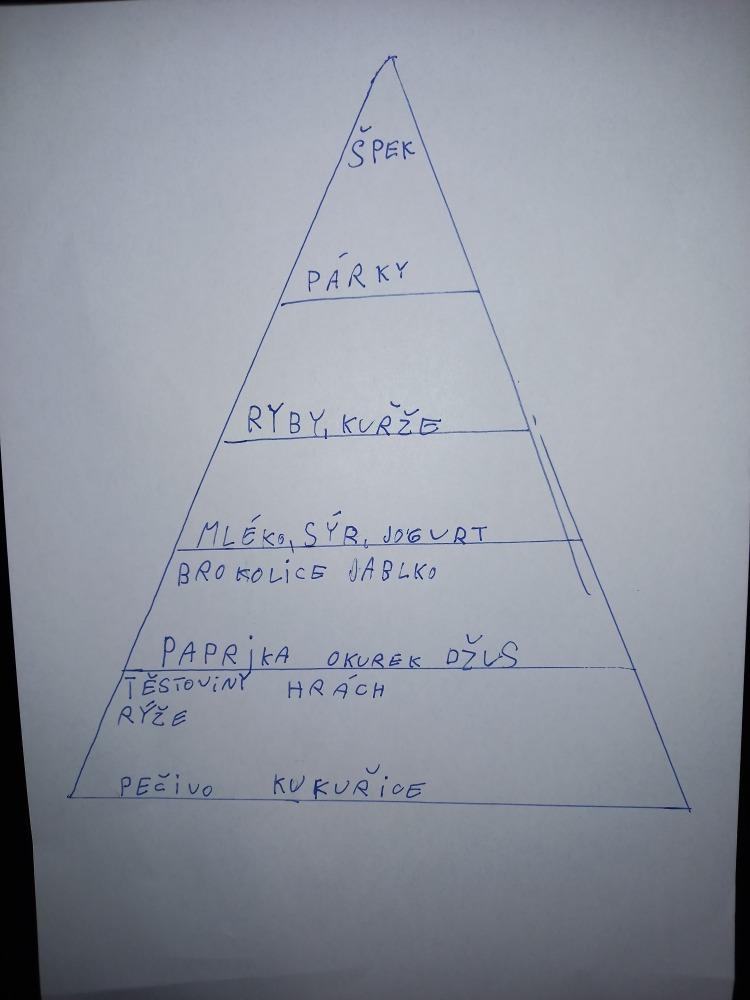 ŠPEK
PÁRKY
RYBY, KUŘŽE
MLÉKO, SÝR, JOGURT
BROKOLICE JABLKO
PAPRIKA OKUREK DŽUS
TĚSTOVINY HRÁCH
RÝŽE
PEČIVO KUKUŘICE